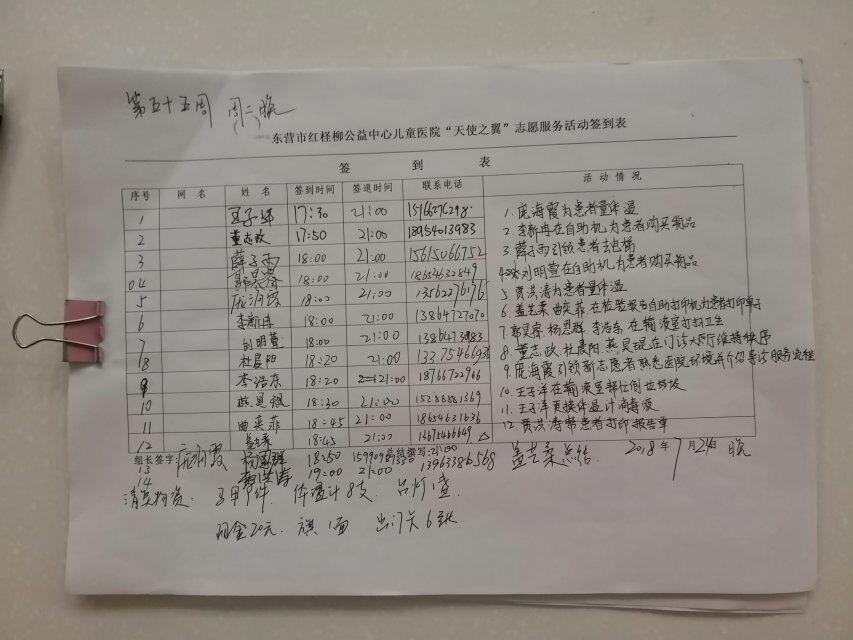 第五十五周 周二晚
东营市红柽柳公益中心儿童医院“天使之翼”志愿服务活动签到表
签 到 表
序号 网 名 姓 名 签到时间 签退时间 联系电话 活 动 情 况
1 王子洋 17:30 21:00 15766276298
2 董志政 17:50 21:00 18954013983
3 薛子雨 18:00 21:00 15615066752
04 郭昊睿 18:00 21:00 18654632849
5 庞海霞 18:00 21:00 13562276176
6 李新冉 18:00 21:00 13864727070
7 刘明萱 18:00 21:00
8 杜晨阳 18:20 21:00
9 李浩东 18:20 21:00 18766722966
10 18:30 21:00 15288881369
11 曲奕菲 18:45 21:00 18654631636
12 盖艺柔 18:45 21:00
1. 庞海霞为患者量体温
2. 李新冉在自助机为患者购买物品
3 薛子雨引领患者去电梯
4 刘明萱在自助机为患者购买物品
5 贾洪涛为患者量体温
6 盖艺柔 曲奕菲 在检验报告自助打印机为患者打印单子
7 郭昊睿 杨恩群 李浩东 在输液室打扫卫生
8 董志政 杜晨阳 在门诊大厅维持秩序
9 庞海霞引领新志愿者熟悉医院环境并介绍导诊服务流程
10 王子洋在输液室移位倒垃圾
11 王子洋更换体温计消毒液
12 贾洪涛帮患者打印报告单
组长签字: 庞海霞 总结撰写: 盖艺柔总结 2018年7月24日 晚
13 杨恩群 18:50 21:00
14 贾洪涛 19:00 21:00 13963386568
清点物资: 马甲 件 体温计8支 台灯1盏
现金20元 旗1面 出门关6张